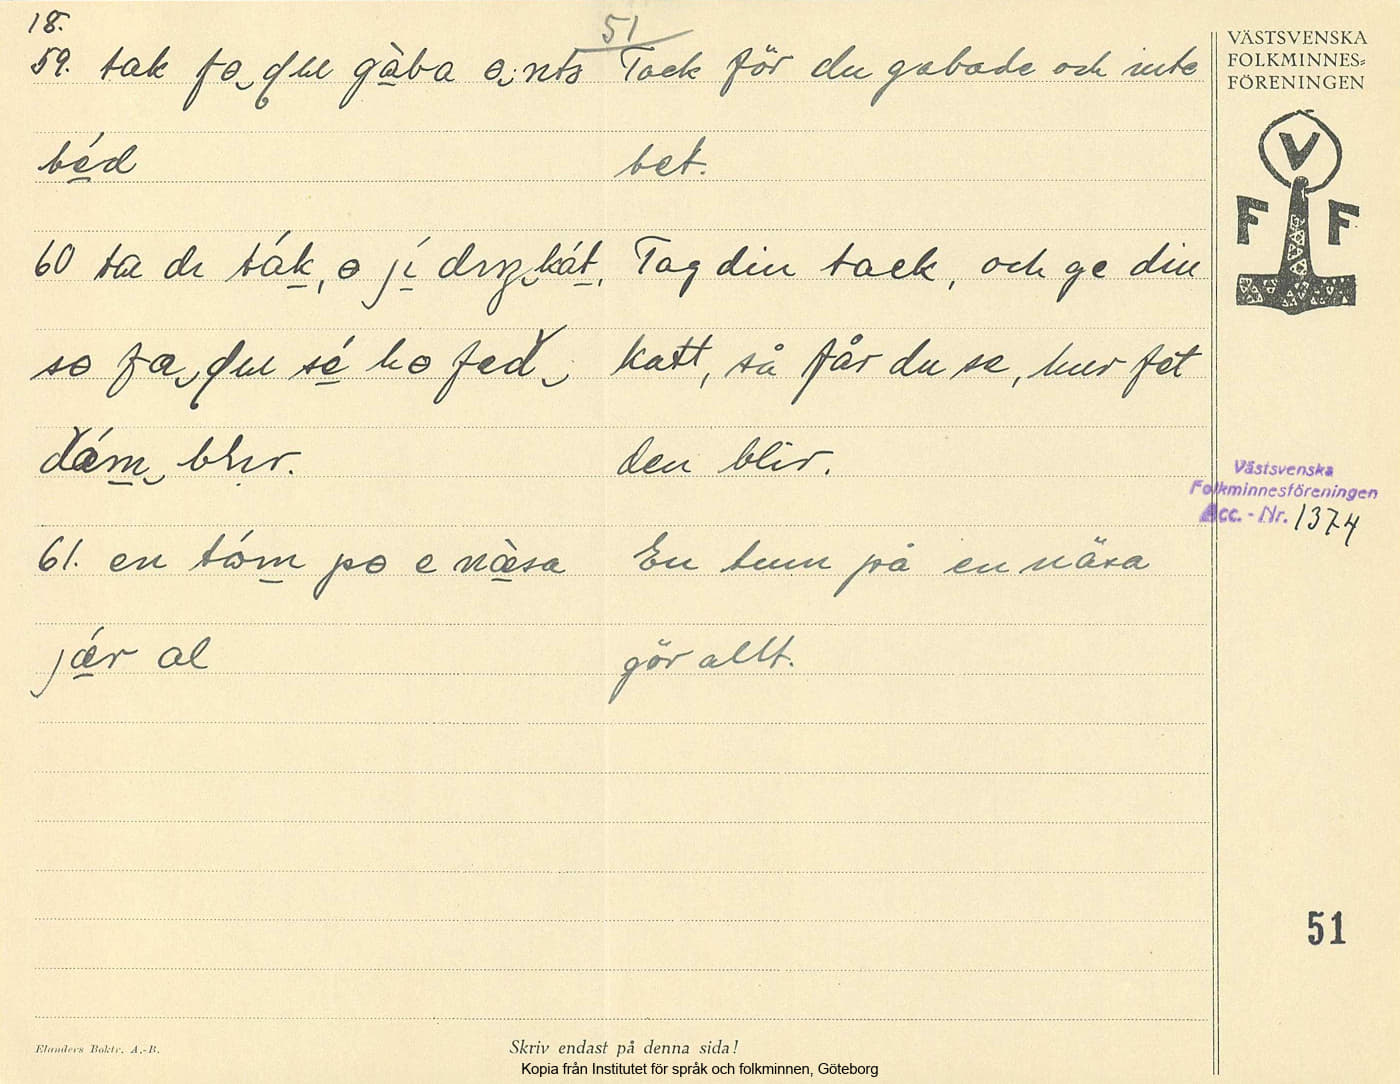 18.
51
59. tak fo gäba o ints Tack för du gabade och inte
béd bet.
60 ta di ták, o jí din kát, Tag din tack, och ge din
so fa sé ho fed katt, så får du se, hur fet
blir. den blir.
61. en tóm po e näsa En tum på en näsa
jǽr al gör allt.
VÄSTSVENSKA
FOLKMINNES-
FÖRENINGEN
V
F F
Västsvenska
Folkminnesföreningen
Acc. - Nr. 1374
51
Elanders Boktr. A.-B.
Skriv endast på denna sida!
Kopia från Institutet för språk och folkminnen, Göteborg